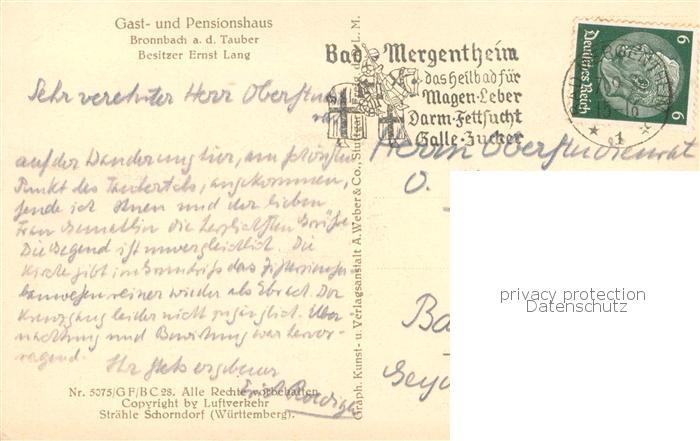 Gast- und Pensionshaus
Bronnbach a. d. Tauber
Besitzer Ernst Lang
Bad Mergentheim
das Heilbad für
Magen-Leber
Darm-Fettsucht
Galle-Zucker
MERGENTHEIM
1
Deutsches Reich
6
6
Sehr verehrter Herr Oberstudien
rat
auf der Wanderung hier, am schönsten
Punkt des Taubertals, angekommen,
sende ich Ihnen und der lieben
Frau Gemahlin die herzlichsten Grüße.
Die Gegend ist unvergleichlich. Die
Kirche gibt im Grundriß das Zisterzienser
bauwesen reiner wieder als Ebrach. Der
Kreuzgang leider nicht zugänglich. Über
nachtung und Bewirtung war hervor-
ragend.
Ihr stets ergebener
Erich
Nr. 5075/GF/BC 28. Alle Rechte vorbehalten
Copyright by Luftverkehr
Strähle Schorndorf (Württemberg).
Graph. Kunst- u. Verlagsanstalt A. Weber & Co., Stuttgart
Herrn Oberstudienrat
O.
Ba
privacy protection
www.oldthing.de